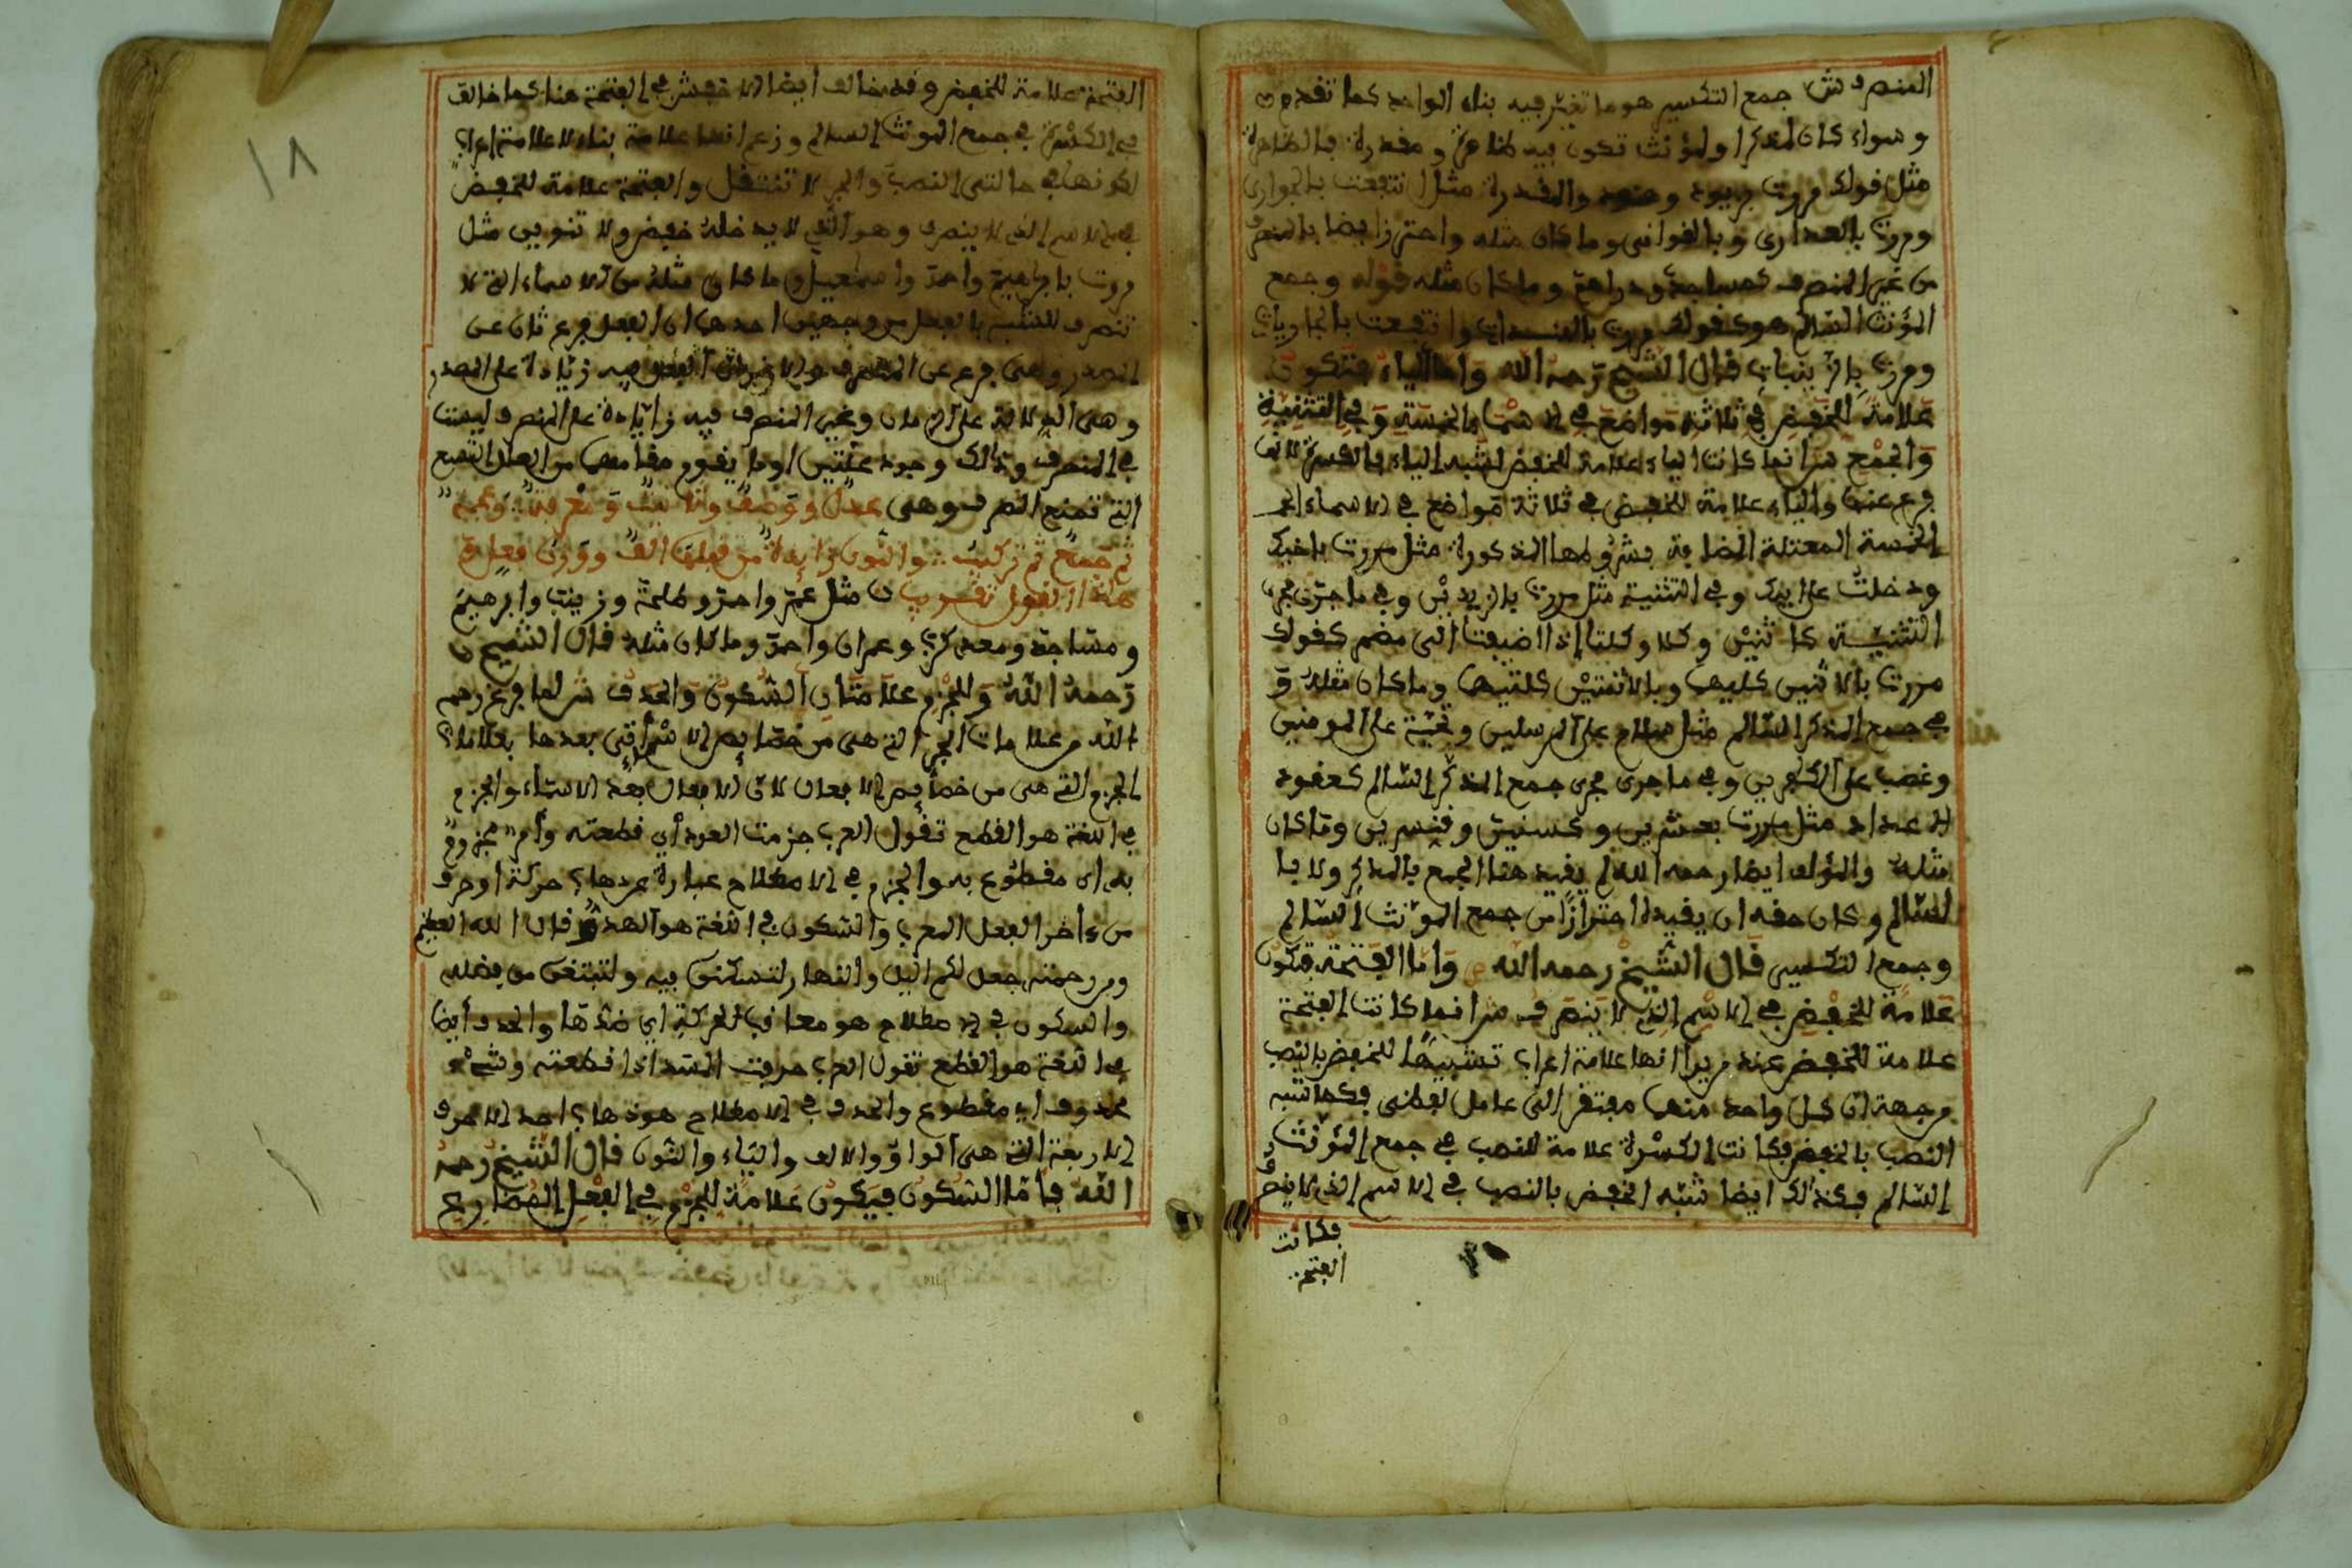 المنصرف ش جمع التكسير هو ما تغير فيه بناء الواحد كما تقدم
وسواء كان لمذكر او لمؤنث تكون فيه ظاهرة ومقدرة فالظاهرة
مثل قولك مررت بزيود وهنود والمقدرة مثل انتفعت بالجواري
ومررت بالعذارى وبالغواني وما كان مثله واحترز ايضا بالمنصرف
من غير المنصرف كمساجد ودراهم وما كان مثله قوله وجمع
المؤنث السالم هو كقولك مررت بالهندات وانتفعت بالجاريات
ومررت بالزينبات قال الشيخ رحمه الله وَاما اليَاء فتكون
عَلامَة للخفض في ثلاثة مَواضعَ في الاسماء الخمسة وَفي التثنية
وَالجمْع ش انما كانت الياء علامة للخفض لشبه الياء بالكسرة لانها
فرع عنها والياء علامة للخفض في ثلاثة مواضع في الاسماء
الخمسة المعتلة المضافة بشروطها المذكورة مثل مررت باخيك
ودخلت على ابيك وفي التثنية مثل مررت بالزيديْن وفي ما جرى مجرى
التثنية كاثنيْن وكلا وكلتا إذا اضيفتا الى مضمر كقولك
مررت بالاثنين كليهما وبالاثنتيْن كلتيهما وما كان مثله وَ
في جمع المذكر السالم مثل سلام على المرسلين وتحيّة على المومنين
وغضب على الكافرين وفي ما جرى مجرى جمع المذكر السّالم كعقود
الاعداد مثل مررت بعشرين وكسنين وقنسرين وما كان
مثله والمؤلف ايضا رحمه الله لم يقيد هنا الجمع بالمذكر ولا با
لسّالم وكان حقه ان يقيده احترازًا من جمع المؤنث السّالم
وجمع التكسير قال الشيخ رحمه الله وَامّا الفتحة فتكون
عَلامَة للخفْض في الاسْم الذِي لا ينصَرف ش انما كانت الفتحة
علامة للخفض عند من يرا انها علامة اعراب تشبيهًا للخفض بالنصب
من جهة ان كل واحد منهما مفتقر الى عامل لفظي فكما شبه
النصب بالخفض فكانت الكسْرة علامة للنصب في جمع المؤنث
السّالم فكذلك ايضا شبّه الخفض بالنصب في الاسم الذي لا ينصرف
فكانت
الفتحة
١٨
الفتحة علامة للخفض وقد خالف ايضا الاخفش في الفتحة هنا كما خالف
في الكسْرة في جمع المونث السالم وزعم انها علامة بناء لا علامة اعراب
لكونها في حالتي النصب والجر لا تنتقل والفتحة علامة للخفض
في الاسم الذي لا ينصرف وهو الذي لا يدخله خفض ولا تنوين مثل
مررت بابراهيمَ واحمدَ واسمعيلَ وما كان مثله من الاسماء التي لا
تنصرف للشبه بالفعل من وجهين احدهما ان الفعل فرع ثان عن
المصدر وهي فرع عن المنصرف والاخر ان الفعل فيه زيادة على المصدر
وهي الدلالة على الزمان وغير المنصرف فيه زايادة على المنصرف ليست
في المنصرف وذالك وجود علّتين او ما يقوم مقامهما من العلل التسع
التي تمنع الصرف وهي عدل ووَصف وتانيث وَمعْرفة وَعجمة
ثم جَمع ثم تركيب والنون زايدة من قبلها الف ووزن فعل و
هذا القول تقريب ن مثل عمرَ واحمدَ وطلحةَ وزينبَ وابرهيمَ
ومسَاجدَ ومعدي كرب وعمران واحمدَ وما كان مثله قال الشيخ
رَحمهُ اللهُ وَللجزْم علامَتَانِ السُّكونُ وَالحَذف ش لما فرغ رحمه
الله من علامات الجر التي هي من خصّايص الاسْم اتى بعدها بعلامات
الجزم التي هي من خصايص الافعال لان الافعال بعْد الاسمَاء والجزم
في اللغة هو القطع تقول العرب جزمت العود أي قطعته وأمر مجزوم
به اى مقطوع به والجزم في الاصطلاح عبارة عن ذهاب حركة او حرف
من ءاخر الفعل المعرب والسّكون في اللغة هو الهدو قال الله العظيم
ومن رحمته جعل لكم اليل والنهار لتسكنوا فيه ولتبتغوا من فضله
والسكون في الاصطلاح هو معاقب الحركة اي ضدّها والحذف أيضا
في اللغة هو القطع تقول العرب حذفت الشىء اذا قطعته وشىْء
محذوف اي مقطوع والحذف في الاصطلاح هو ذهاب احد الاحرف
الاربعة التي هي الواو والالف واليَاء والنّون قال الشيخ رحمه
اللهُ فأمّا السّكون فيَكونُ عَلامَةً للجزْم في الفعْلِ المُضَارِع